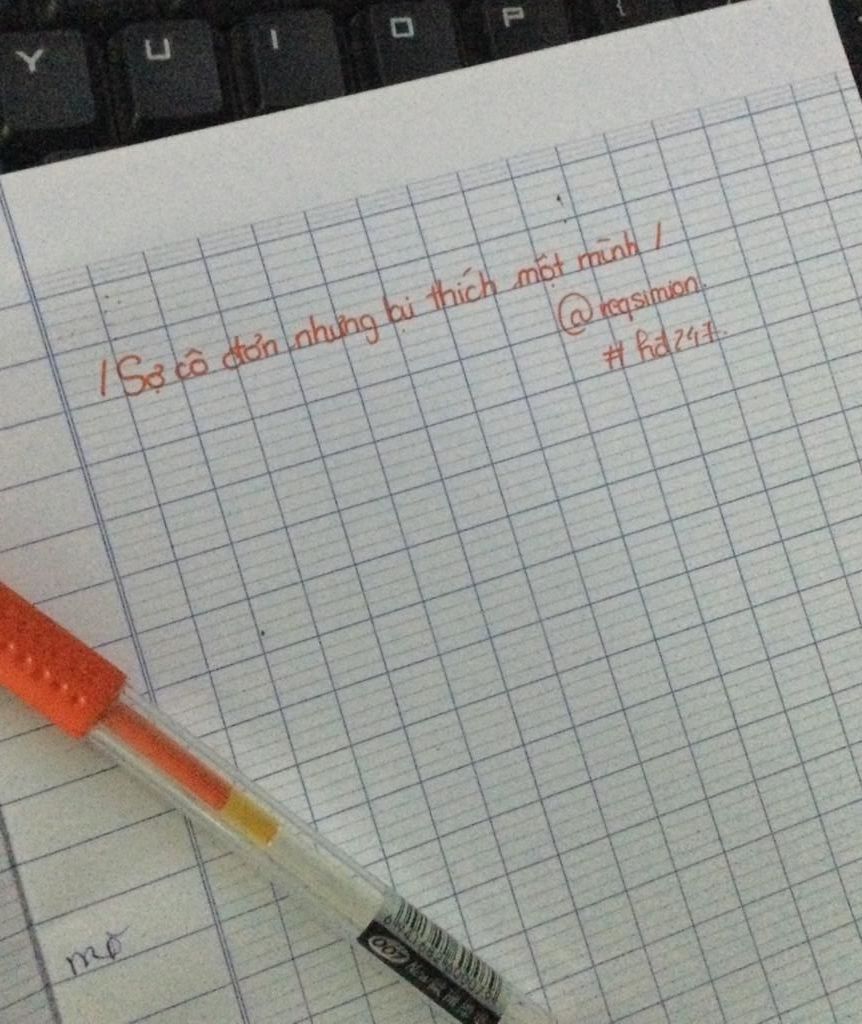 Y U I O P {
/ Sợ cô đơn nhưng bị thích một mình /
@reqsimion.
# hd247.
mở
007